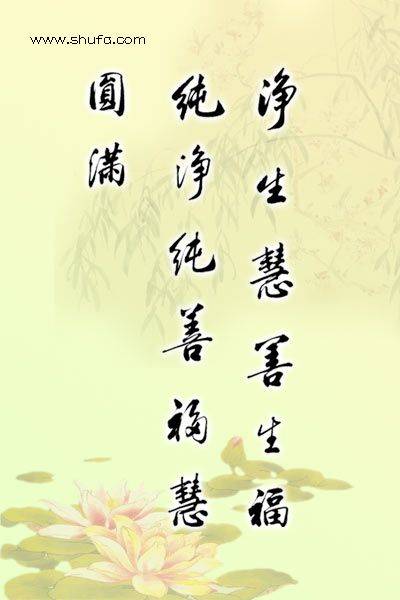 www.shufa.com
净生慧善生福
纯净纯善福慧
圓满